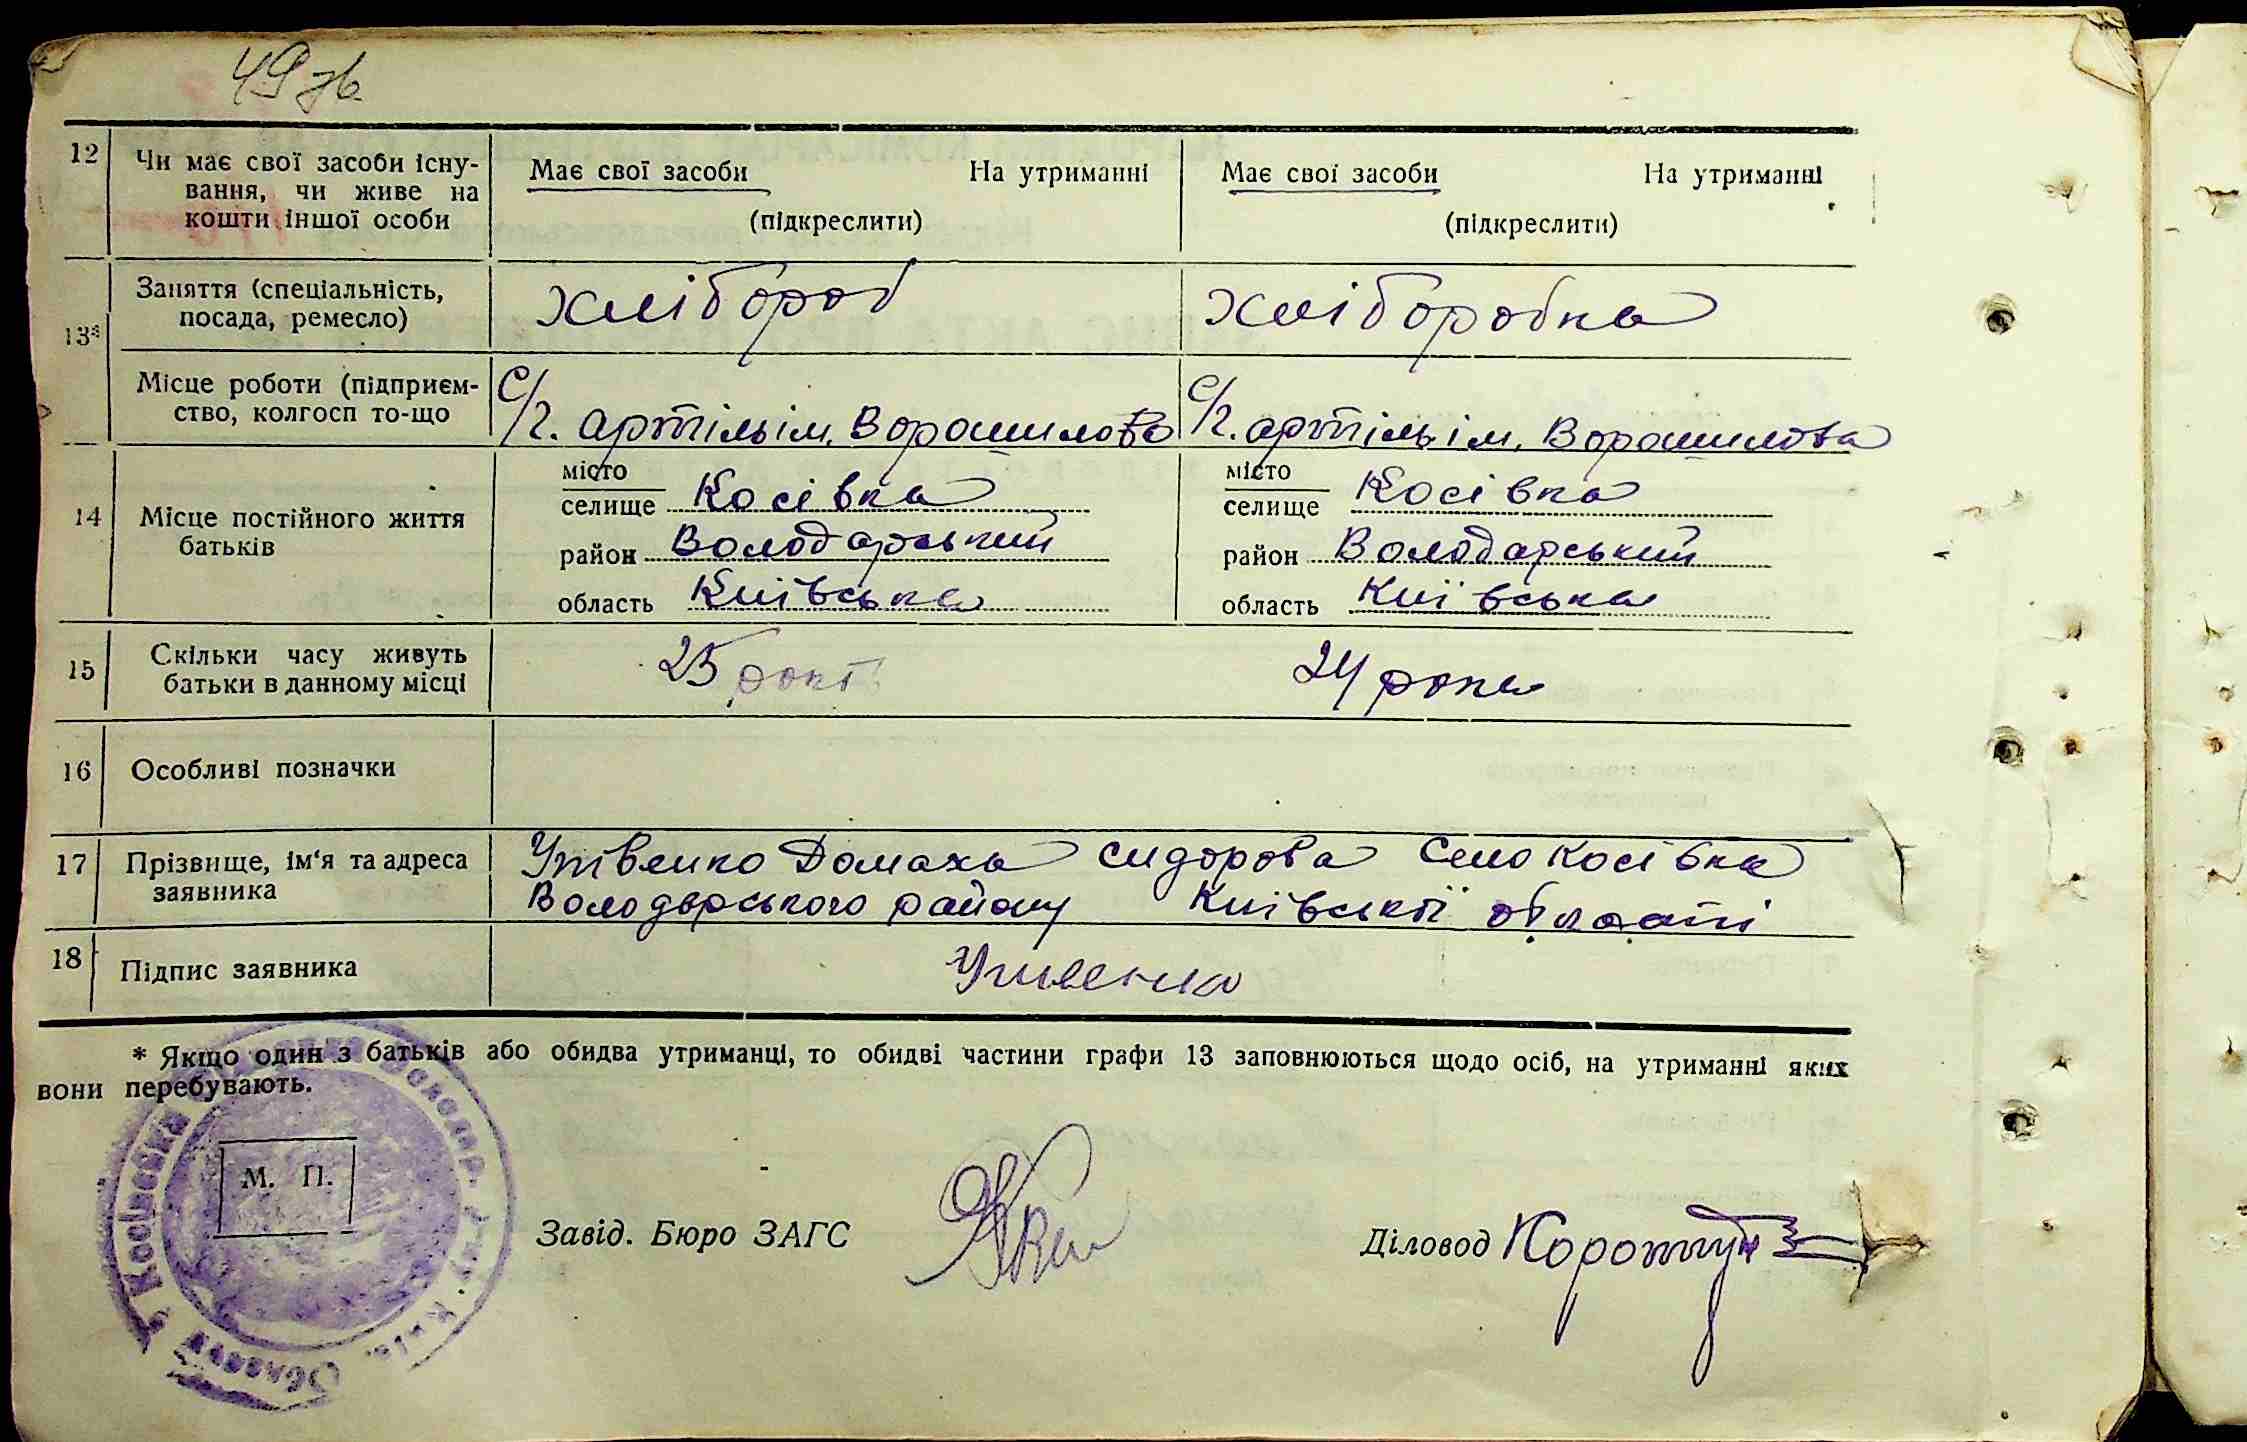 49 зв
12 Чи має свої засоби існу-
вання, чи живе на
кошти іншої особи
Має свої засоби На утриманні
(підкреслити)
Має свої засоби На утриманні
(підкреслити)
13*
Заняття (спеціальність,
посада, ремесло)
Хлібороб
Хліборобка
Місце роботи (підприєм-
ство, колгосп то-що
С/г. артіль ім. Ворошилова
С/г. артіль ім. Ворошилова
14 Місце постійного життя
батьків
місто
селище Косівка
район Володарський
область Київська
місто
селище Косівка
район Володарський
область Київська
15 Скільки часу живуть
батьки в данному місці
25 років
24 роки
16 Особливі позначки
17 Прізвище, ім'я та адреса
заявника
Домаха Сидорова Село Косівка
Володарського району Київської області
18 Підпис заявника
* Якщо один з батьків або обидва утриманці, то обидві частини графи 13 заповнюються щодо осіб, на утриманні яких
вони перебувають.
М. П.
Косівська
Завід. Бюро ЗАГС
Діловод